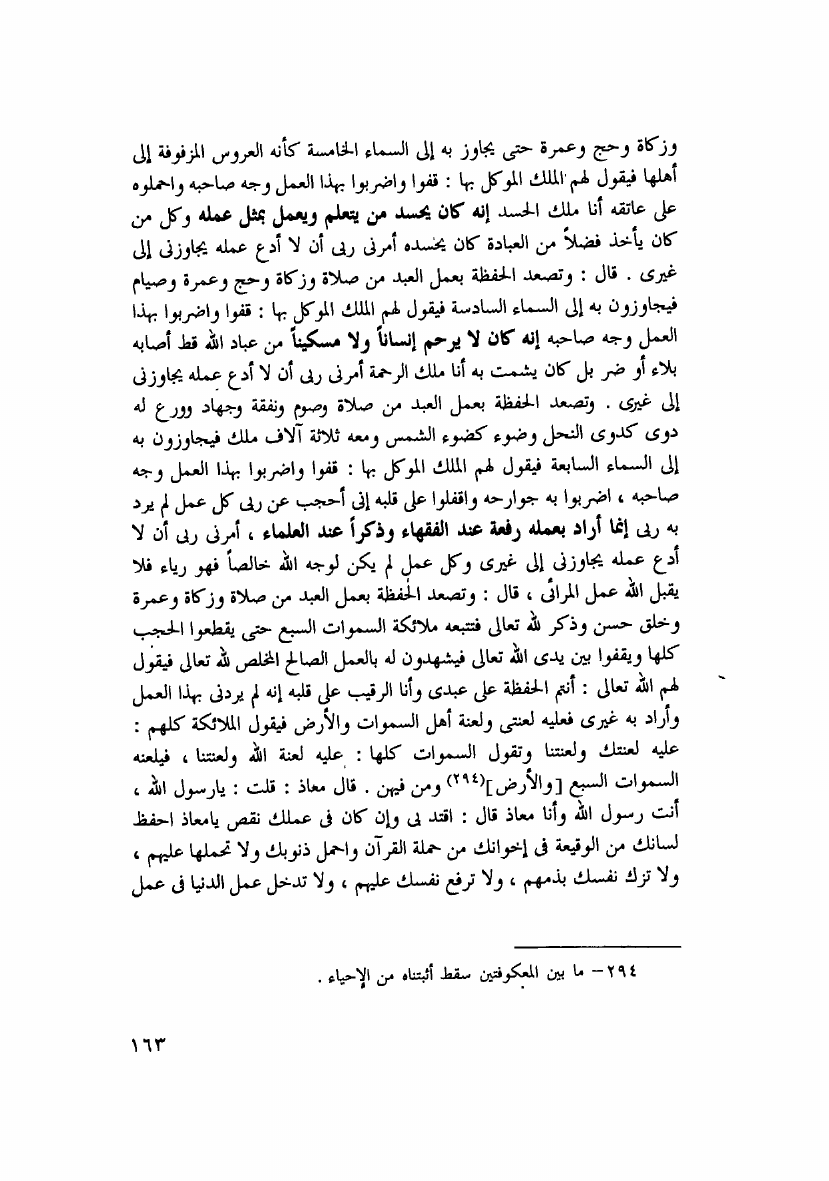 وزكاة وحج وعمرة حتى يجاوز به إلى السماء الخامسة كأنه العروس المزفوفة إلى
أهلها فيقول لهم الملك الموكل بها : قفوا واضربوا بهذا العمل وجه صاحبه واحملوه
على عاتقه أنا ملك الحسد إنه كان يحسد من يتعلم ويعمل بمثل عمله وكل من
كان يأخذ فضلاً من العبادة كان يحسده أمرنى ربى أن لا أدع عمله يجاوزنى إلى
غيرى . قال : وتصعد الحفظة بعمل العبد من صلاة وزكاة وحج وعمرة وصيام
فيجاوزون به إلى السماء السادسة فيقول لهم الملك الموكل بها : قفوا واضربوا بهذا
العمل وجه صاحبه إنه كان لا يرحم إنساناً ولا مسكيناً من عباد الله قط أصابه
بلاء أو ضر بل كان يشمت به أنا ملك الرحمة أمرنى ربى أن لا أدع عمله يجاوزنى
إلى غيرى . وتصعد الحفظة بعمل العبد من صلاة وصوم ونفقة وجهاد وورع له
دوى كدوى النحل وضوء كضوء الشمس ومعه ثلاثة آلاف ملك فيجاوزون به
إلى السماء السابعة فيقول لهم الملك الموكل بها : قفوا واضربوا بهذا العمل وجه
صاحبه ، اضربوا به جوارحه واقفلوا على قلبه إنى أحجب عن ربى كل عمل لم يرد
به ربى إنما أراد بعمله رفعة عند الفقهاء وذكراً عند العلماء ، أمرنى ربى أن لا
أدع عمله يجاوزنى إلى غيرى وكل عمل لم يكن لوجه الله خالصاً فهو رياء فلا
يقبل الله عمل المرائى ، قال : وتصعد الحفظة بعمل العبد من صلاة وزكاة وعمرة
وخلق حسن وذكر لله تعالى فتتبعه ملائكة السموات السبع حتى يقطعوا الحجب
كلها ويقفوا بين يدى الله تعالى فيشهدون له بالعمل الصالح المخلص لله تعالى فيقول
لهم الله تعالى : أنتم الحفظة على عبدى وأنا الرقيب على قلبه إنه لم يردنى بهذا العمل
وأراد به غيرى فعليه لعنتى ولعنة أهل السموات والأرض فيقول الملائكة كلهم :
عليه لعنتك ولعنتنا وتقول السموات كلها : عليه لعنة الله ولعنتنا ، فيلعنه
السموات السبع [والأرض](٢٩٤) ومن فيهن . قال معاذ : قلت : يارسول الله ،
أنت رسول الله وأنا معاذ قال : اقتد بى وإن كان فى عملك نقص يامعاذ احفظ
لسانك من الوقيعة فى إخوانك من حملة القرآن واحمل ذنوبك ولا تحملها عليهم ،
ولا تزك نفسك بذمهم ، ولا ترفع نفسك عليهم ، ولا تدخل عمل الدنيا فى عمل
٢٩٤ – ما بين المعكوفتين سقط أثبتناه من الإحياء .
١٦٣